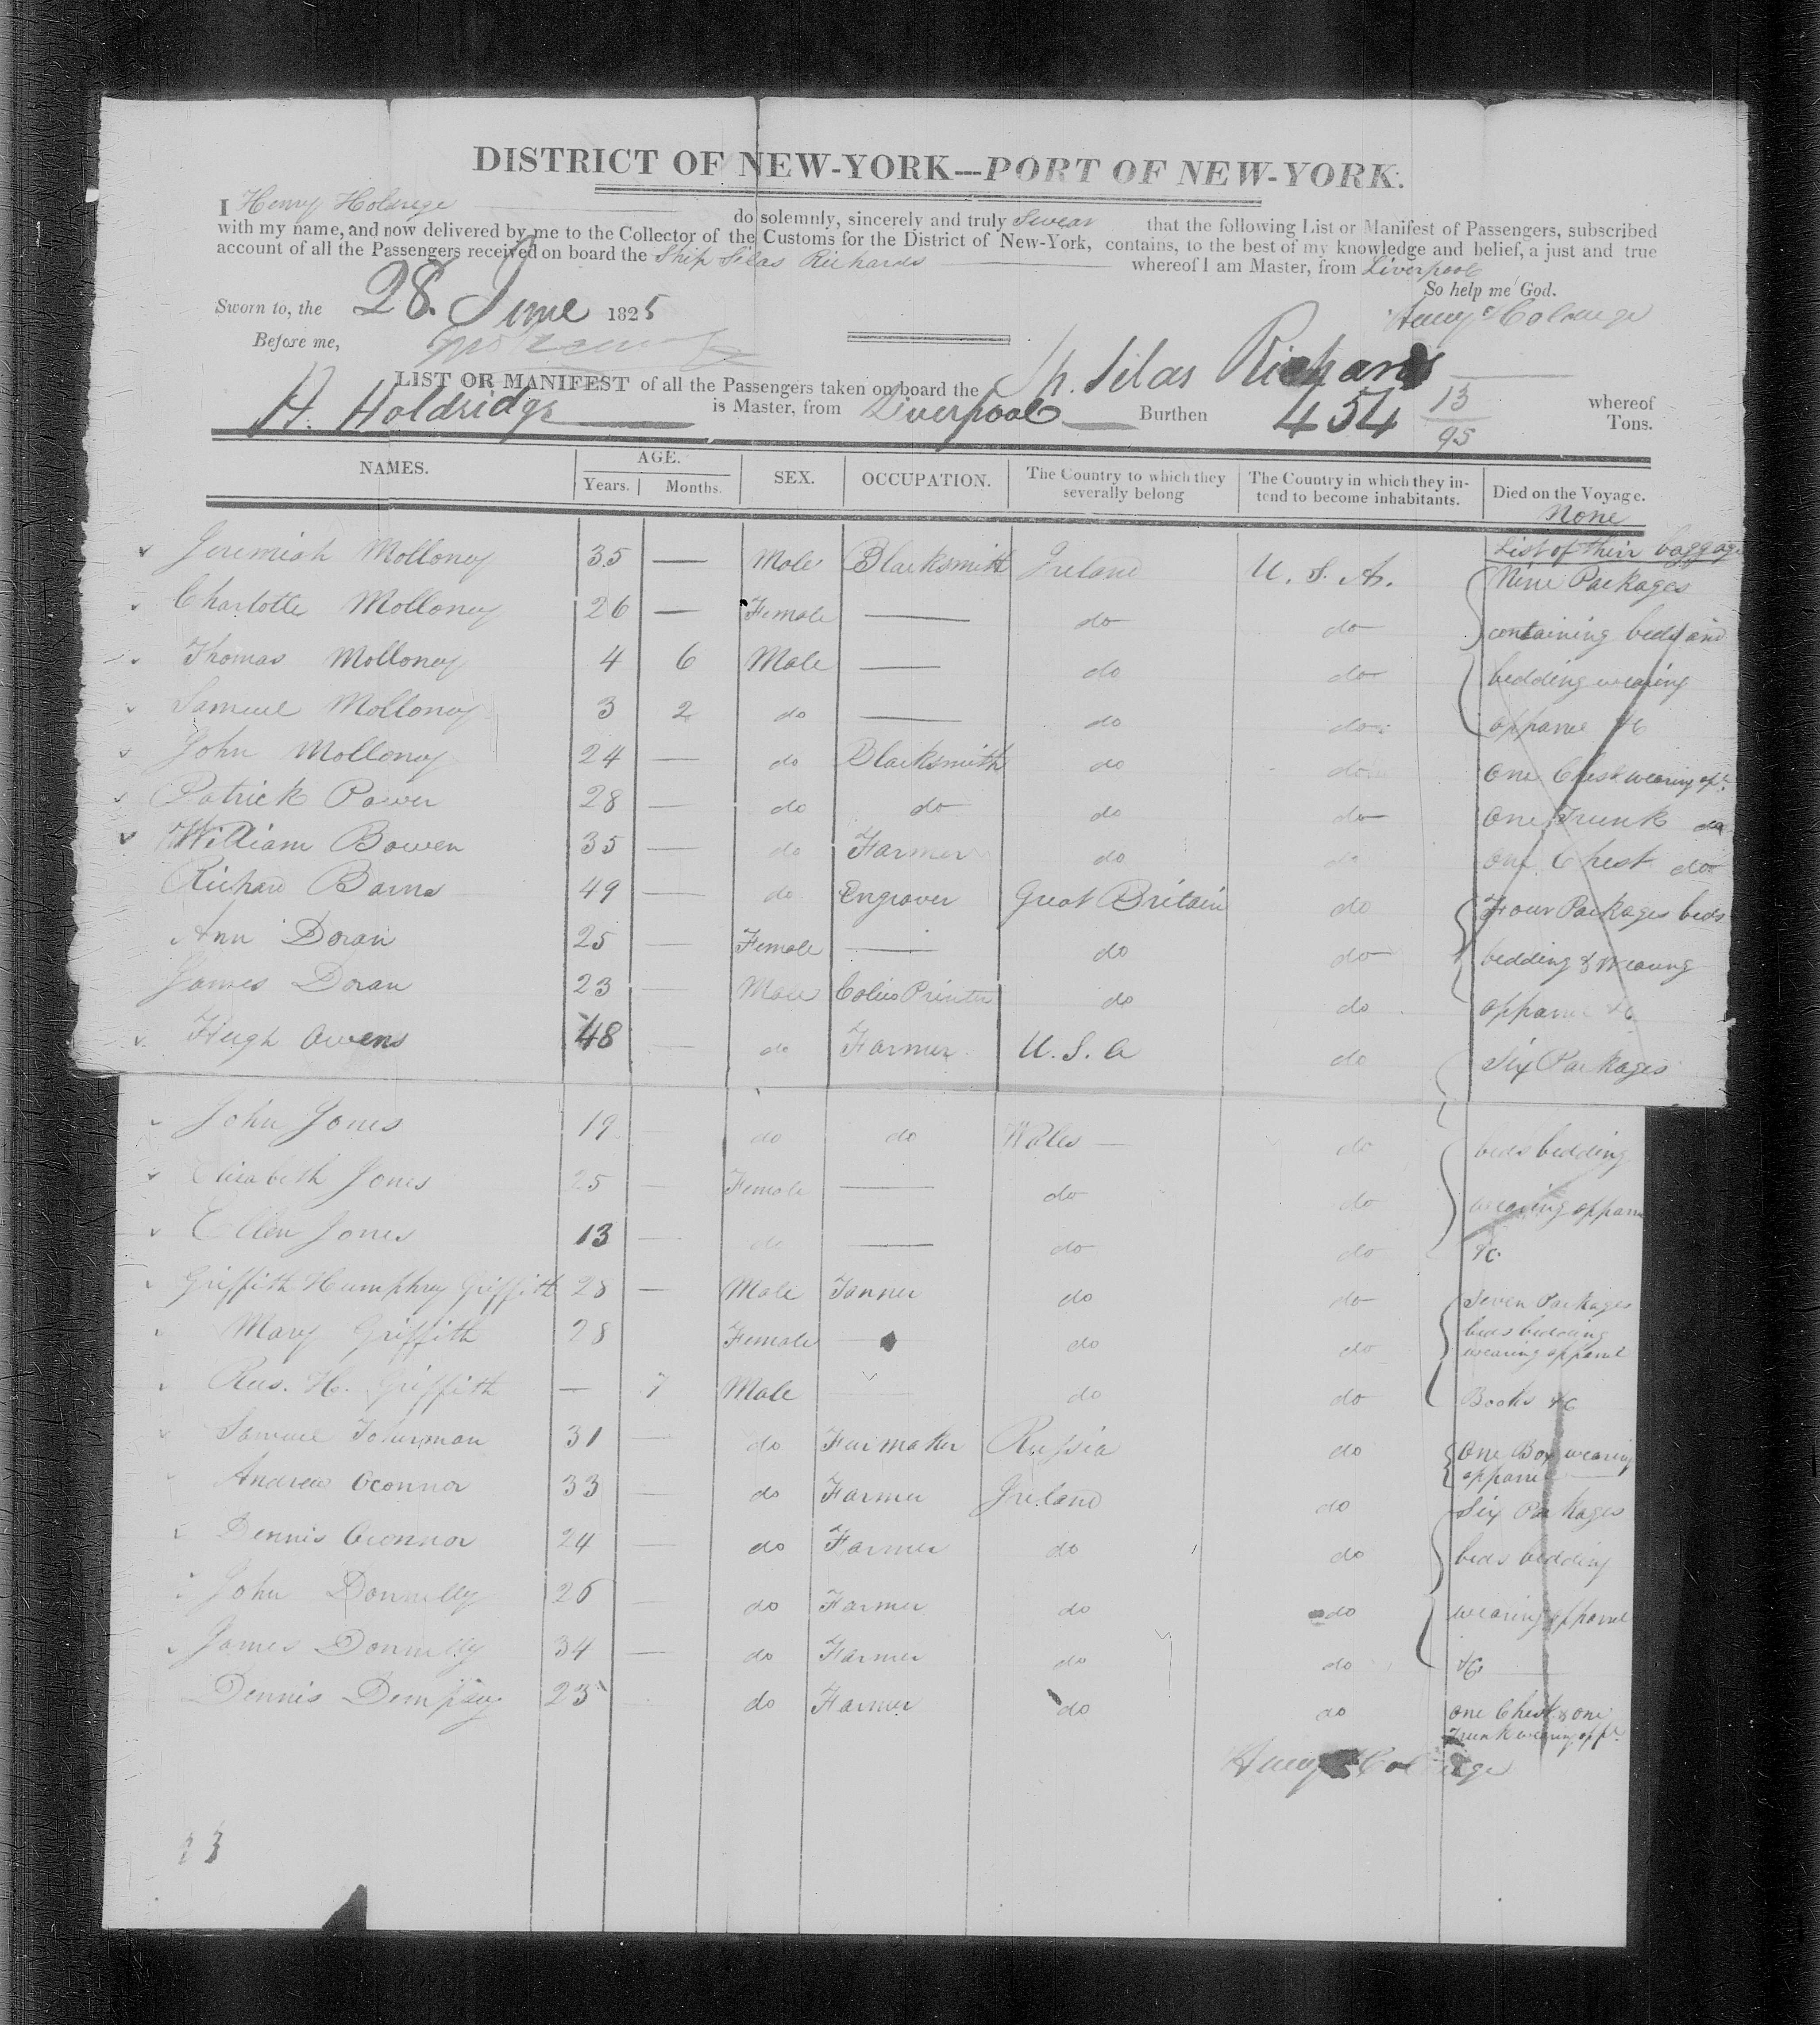 DISTRICT OF NEW-YORK—PORT OF NEW-YORK.
I Henry Holdrege do solemnly, sincerely and truly Swear that the following List or Manifest of Passengers, subscribed
with my name, and now delivered by me to the Collector of the Customs for the District of New-York, contains, to the best of my knowledge and belief, a just and true
account of all the Passengers received on board the Ship Silas Richards whereof I am Master, from Liverpool
So help me God.
Sworn to, the 28. June 1825 Henry Holdrege
Before me,
LIST OR MANIFEST of all the Passengers taken on board the Sh. Silas Richards whereof
H. Holdridge is Master, from Liverpool Burthen 454 13/95 Tons.
NAMES. AGE. SEX. OCCUPATION. The Country to which they severally belong The Country in which they intend to become inhabitants. Died on the Voyage.
Years. Months. None
List of their baggage
Jeremiah Molloney 35 — Male Blacksmith Ireland U. S. A. Nine Packages
Charlotte Molloney 26 — Female — do do containing beds and
Thomas Molloney 4 6 Male — do do bedding wearing
Samuel Molloney 3 2 do — do do apparel &c
John Molloney 24 — do Blacksmith do do One Chest wearing apl.
Patrick Power 28 — do do do do One Trunk do
William Bowen 35 — do Farmer do do One Chest do
Richard Barns 49 — do Engraver Great Britain do Four Packages beds
Ann Doran 25 — Female — do do bedding & wearing
James Doran 23 — Male Calico Printer do do apparel &c
Hugh Owens 48 — do Farmer U. S. A do Six Packages
John Jones 19 — do do Wales — do beds bedding
Elisabeth Jones 25 — Female — do do wearing apparel
Ellen Jones 13 — do — do do &c.
Griffith Humphrey Griffith 28 — Male Tanner do do Seven Packages
Mary Griffith 28 Female — do do beds bedding wearing apparel
Rees. H. Griffith — 7 Male — do do Books &c
Samuel 31 — do Furmaker Russia do One Box wearing apparel
Andrew Oconnor 33 — do Farmer Ireland do Six Packages
Dennis Oconnor 24 — do Farmer do do beds bedding
John Donnelly 26 — do Farmer do do wearing apparel
James Donnelly 34 — do Farmer do do &c
Dennis Dempsey 25 do Farmer do do One Chest & one
Trunk wearing appl.
Henry Holdrege
23